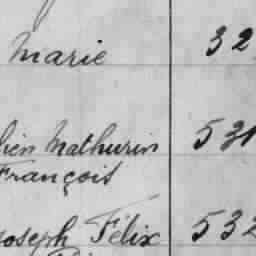 Marie 32
Mathurin 531
François
Joseph Félix 532